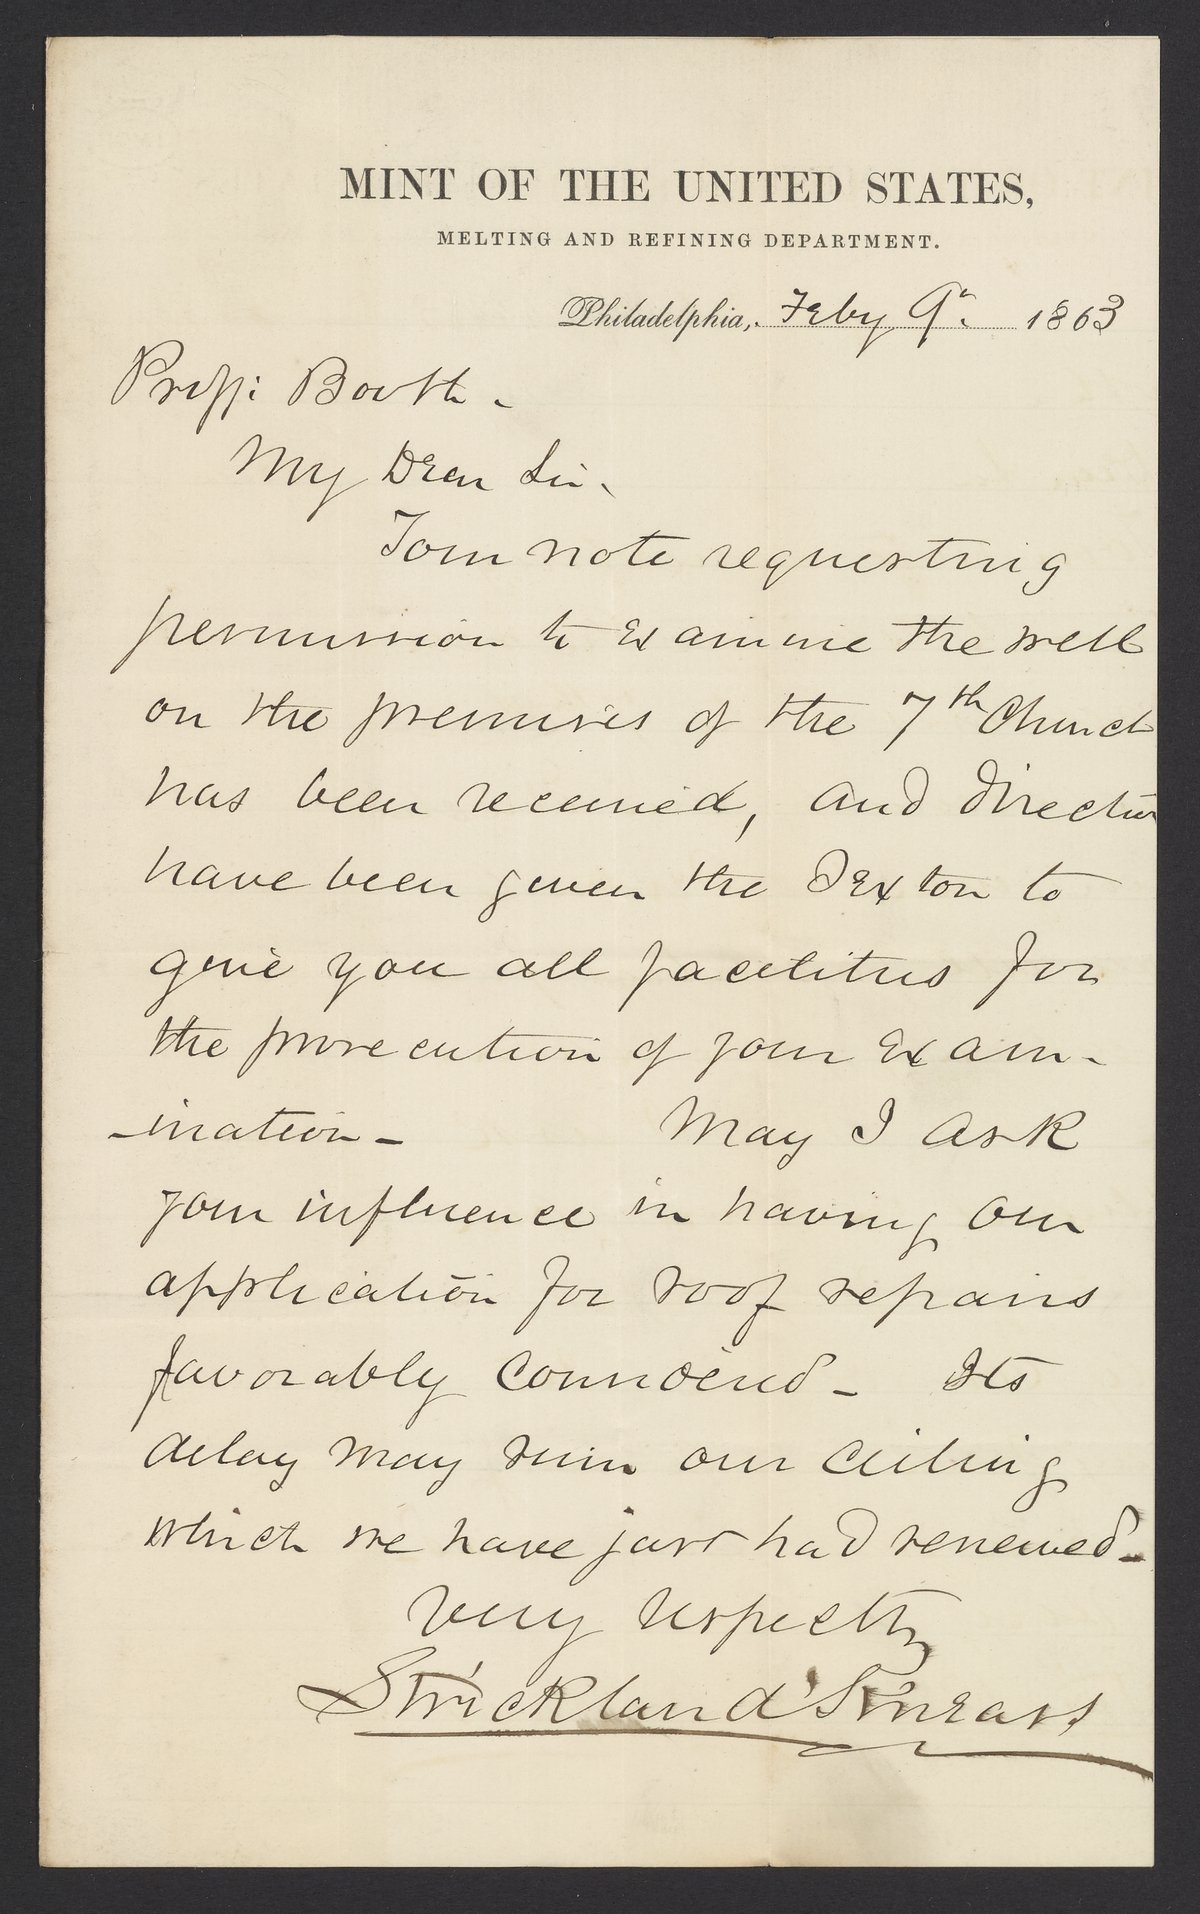 MINT OF THE UNITED STATES,
MELTING AND REFINING DEPARTMENT.
Philadelphia, Feby 9th 1863
Proff: Booth -
My Dear Sir.
Your note requesting
permission to examine the well
on the premises of the 7th Church
has been received, and direction
have been given the Sexton to
give you all facilities for
the prosecution of your exam-
-ination - May I ask
your influence in having our
application for roof repairs
favorably considered - Its
delay may ruin our ceiling
which we have just had renewed -
Very respectly
Strickland Kneass